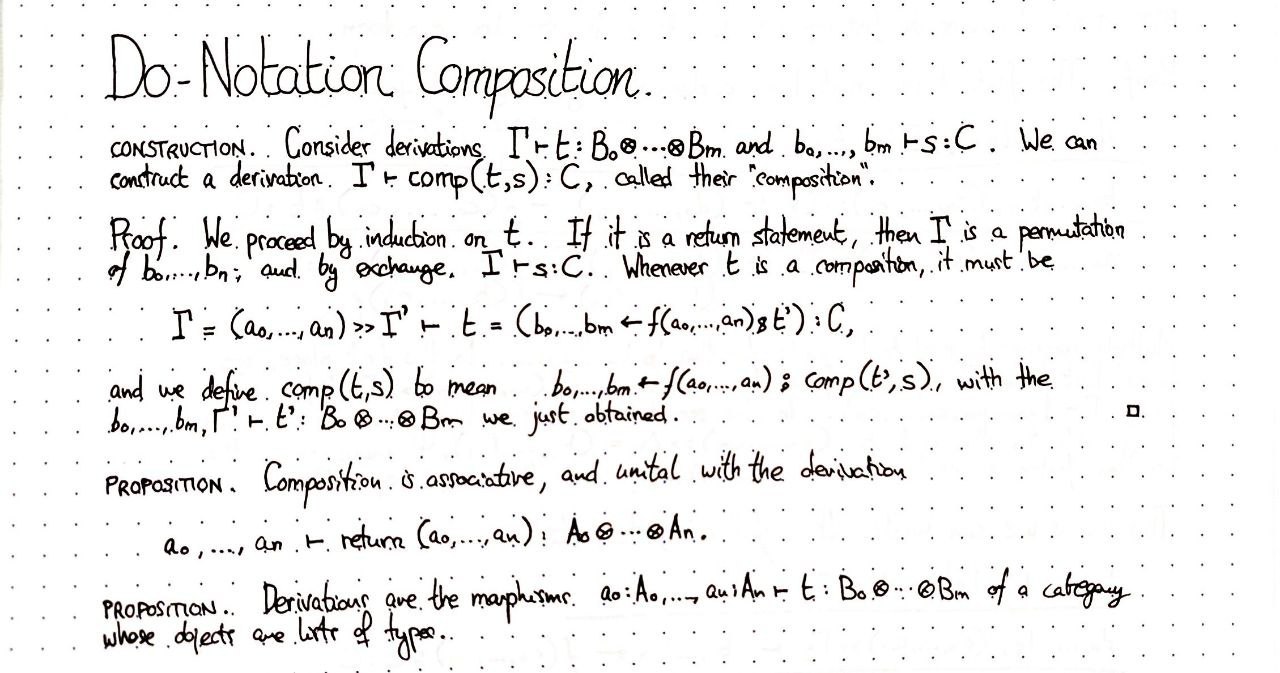 Do-Notation Composition.
CONSTRUCTION. Consider derivations Γ ⊢ t : B₀⊗···⊗Bm and b₀,..., bm ⊢ s : C. We can
construct a derivation Γ ⊢ comp(t,s) : C, called their "composition".
Proof. We proceed by induction on t. If it is a return statement, then Γ is a permutation
of b₀,..., bn; and by exchange, Γ ⊢ s : C. Whenever t is a composition, it must be
Γ = (a₀,..., an) >> Γ' ⊢ t = (b₀,..., bm ← f(a₀,..., an) ⨟ t') : C,
and we define comp(t,s) to mean b₀,..., bm ← f(a₀,..., an) ⨟ comp(t',s), with the
b₀,..., bm, Γ' ⊢ t' : B₀ ⊗···⊗ Bm we just obtained. □
PROPOSITION. Composition is associative, and unital with the derivation
a₀,..., an ⊢ return (a₀,..., an) : A₀ ⊗···⊗ An.
PROPOSITION. Derivations are the morphisms a₀:A₀,..., an:An ⊢ t : B₀⊗···⊗Bm of a category
whose objects are lists of types.